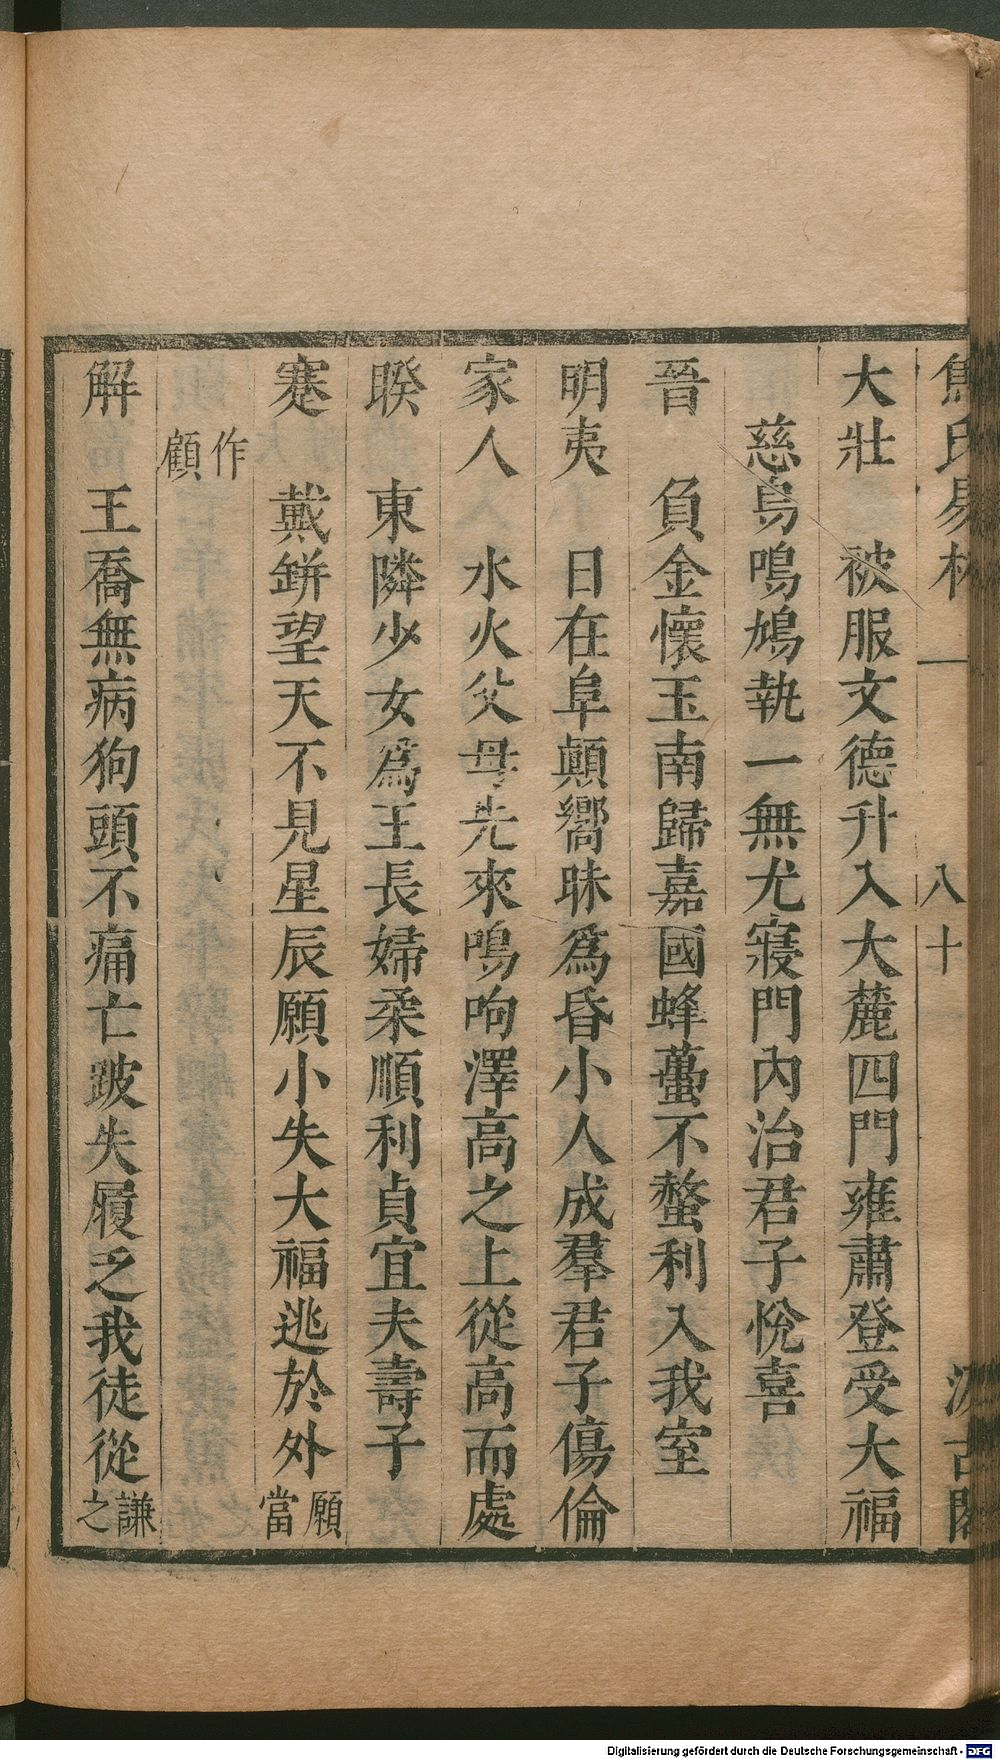 焦氏易林 一 八十 汲古閣
大壯 被服文德升入大麓四門雍肅登受大福
慈烏鳴鳩執一無尤寢門內治君子悅喜
晉 負金懷玉南歸嘉國蜂蠆不螫利入我室
明夷 日在阜顛嚮昧爲昏小人成羣君子傷倫
家人 水火父母先來鳴呴澤高之上從高而處
睽 東隣少女爲王長婦柔順利貞宜夫壽子
蹇 戴缾望天不見星辰願小失大福逃於外 願當
作顧
解 王喬無病狗頭不痛亡跛失履乏我徒從 謙之
Digitalisierung gefördert durch die Deutsche Forschungsgemeinschaft - DFG